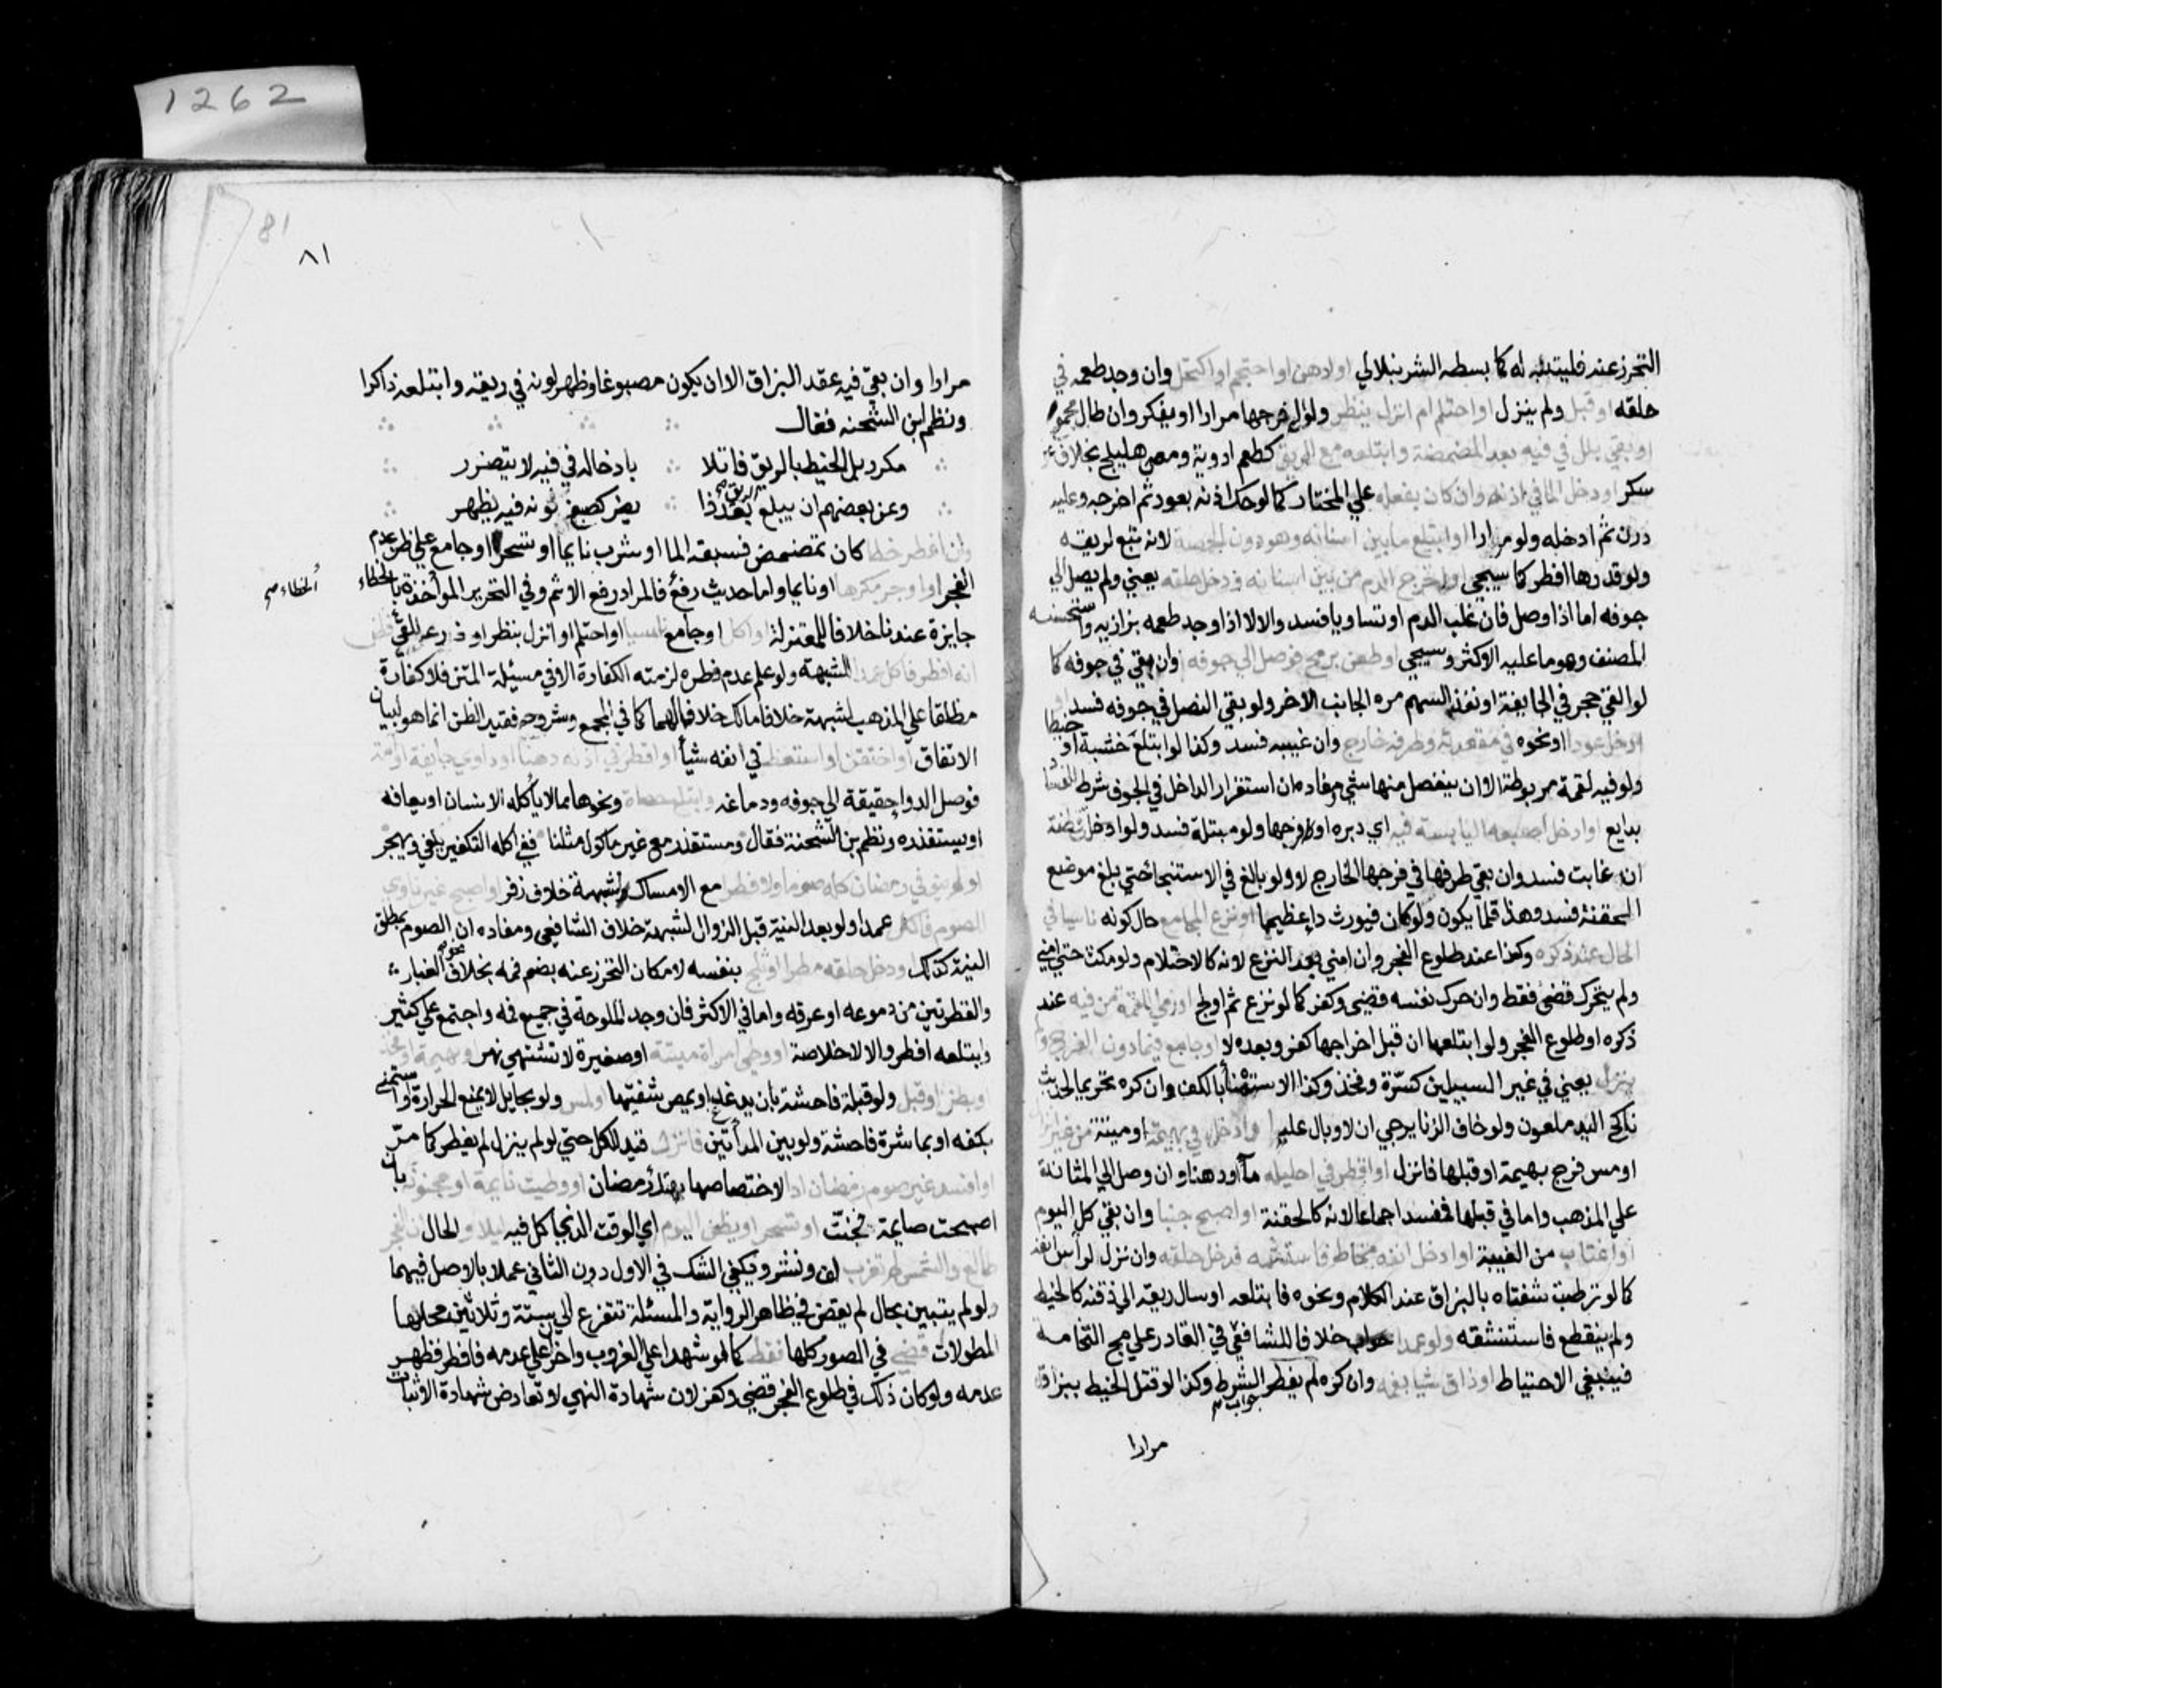 التحرز عنه فليتنبه له كما بسطه الشرنبلالي او ادهن او احتجم او اكتحل وان وجد طعمه في
حلقه او قبل ولم ينزل او احتلم ام انزل بنظر ولو الى فرجها مرارا او بفكر وان طال مجمع
او بقي بلل في فيه بعد المضمضة وابتلعه مع الريق كطعم ادوية ومص هليلج بخلاف نحو
سكر او دخل الما في اذنه وان كان بفعله علي المختار كما لو حك اذنه بعود ثم اخرجه وعليه
درن ثم ادخله ولو مرارا او ابتلع ما بين اسنانه وهو دون الحمصة لانه تبع لريقه
ولو قدرها افطر كما سيجي او خرج الدم من بين اسنانه ودخل حلقه يعني ولم يصل الي
جوفه اما اذا وصل فان غلب الدم او تساويا فسد والا لا الا اذا وجد طعمه بزازيه واستحسنه
المصنف وهو ما عليه الاكثر وسيجي او طعن برمح فوصل الي جوفه وان بقي في جوفه كما
لو القي حجر في الجايفة او نفذ السهم من الجانب الاخر ولو بقي النصل في جوفه فسد او
ادخل عودا او نحوه في مقعدته وطرفه خارج وان غيبه فسد وكذا لو ابتلع خشبة او خيطا
ولو فيه لقمة مربوطة الا ان ينفصل منها شي ومفاده ان استقرار الداخل في الجوف شرط للفساد
بدايع او ادخل اصبعه اليابسة فيه اي دبره او فرجها ولو مبتلة فسد ولو ادخلت قطنة
ان غابت فسد وان بقي طرفها في فرجها الخارج لا ولو بالغ في الاستنجا حتي بلغ موضع
الحقنة فسد وهذا قلما يكون ولو كان فيورث دا عظيما او نزع المجامع حال كونه ناسيا في
الحال عند ذكره وكذا عند طلوع الفجر وان امني بعد النزع لانه كالاحتلام ولو مكث حتي امني
ولم يتحرك قضي فقط وان حرك نفسه قضي وكفر كما لو نزع ثم اولج او رمي اللقمة من فيه عند
ذكره او طلوع الفجر ولو ابتلعها ان قبل اخراجها كفر وبعده لا او جامع فيما دون الفرج ولم
ينزل يعني في غير السبيلين كسرة وفخذ وكذا الاستمنا بالكف وان كره تحريما لحديث
ناكح اليد ملعون ولو خاف الزنا يرجي ان لا وبال عليه او ادخل في بهيمة او ميتة من غير انزال
او مس فرج بهيمة او قبلها فانزل او اقطر في احليله مآ او دهنا وان وصل الي المثانة
علي المذهب واما في قبلها فمفسد اجماعا لانه كالحقنة او اصبح جنبا وان بقي كل اليوم
او اغتاب من الغيبة او ادخل انفه مخاط فاستشمه فدخل حلقه وان نزل لرأس انفه
كما لو ترطبت شفتاه بالبزاق عند الكلام ونحوه فابتلعه او سال ريقه الي ذقنه كالخيط
ولم ينقطع فاستنشقه ولو عمدا خلافا للشافعي في القادر علي مج النخامة
فينبغي الاحتياط او ذاق شيا بفمه وان كره لم يفطر الشرط وكذا لو فتل الخيط ببزاقه
جواب
مرارا
1262
81
٨١
مرارا وان بقي فيه عقد البزاق الا ان يكون مصبوغا وظهر لونه في ريقه وابتلعه ذاكرا
ونظم ابن الشحنه فقال
مكرر بل الخيط بالريق فاتلا بادخاله في فيه لا يتضرر
وعن بعضهم ان يبلع الريق بعد ذا يضر كصبغ لونه فيه يظهر
وان افطر خطا كان تمضمض فسبقه الما او شرب نايما او تسحر او جامع علي ظن عدم
الفجر او اوجر مكرها او نايما واما حديث رفع فالمراد رفع الاثم وفي التحرير المؤاخذة بالخطاء
الخطاء صح
جايزة عندنا خلافا للمعتزلة او اكل او جامع ناسيا او احتلم او انزل بنظر او ذرعه القي فظن
انه افطر فاكل عمدا للشبهة ولو علم عدم فطره لزمته الكفارة الا في مسيلة المتن فلا كفارة
مطلقا علي المذهب لشبهة خلافا مالك خلافا لهما كما في المجمع وشروحه فقيد الظن انما هو لبيان
الاتفاق او احتقن او استعط في انفه شيأ او اقطر في اذنه دهنا او داوي جايفة او آمة
فوصل الدوا حقيقة الي جوفه ودماغه وابتلع حصاة ونحوها مما لا يأكله الانسان او يعافه
او يستقذره ونظم بن الشحنة فقال ومستقذر مع غير ماكول مثلنا ففي اكله التكفير يلغي ويهجر
او لم ينو في رمضان كله صوما ولا فطرا مع الامساك لشبهة خلاف زفر او اصبح غير ناوي
الصوم فاكل عمدا ولو بعد النية قبل الزوال لشبهة خلاف الشافعي ومفاده ان الصوم بمطلق
النية كذلك ودخل حلقه مطر او ثلج بنفسه لامكان التحرز عنه بضم فمه بخلاف نحو الغبار
والقطرتين من دموعه او عرقه واما في الاكثر فان وجد الملوحة في جميع فمه واجتمع علي كثير
وابتلعه افطر والا لا خلاصة او وطي امراة ميتة او صغيرة لا تشتهي نهر او بهيمة او فخذ
او بطن او قبل ولو قبلة فاحشة بان يدغدغ او يمص شفتيها او لمس ولو بحايل لا يمنع الحرارة او استمني
بكفه او بمباشرة فاحشة ولو بين المرأتين فانزل قيد للكل حتي لو لم ينزل لم يفطر كما مر
او افسد غير صوم رمضان ادا لاختصاصها بهتك رمضان او وطيت نايمة او مجنونة بان
اصبحت صايمة فجنت او تسحر او يظن اليوم اي الوقت الذي اكل فيه ليلا والحال ان الفجر
طالع والشمس لم تغرب لف ونشر ويكفي الشك في الاول دون الثاني عملا بالاصل فيهما
ولو لم يتبين بحال لم يقض في ظاهر الرواية والمسئلة تتفرع الي ستة وثلاثين محلها
المطولات قضي في الصور كلها فقط كما لو شهدا علي الغروب واخرا علي عدمه فافطر فظهر
عدمه ولو كان ذلك في طلوع الفجر قضي وكفر لان شهادة النهي لا تعارض شهادة الاثبات